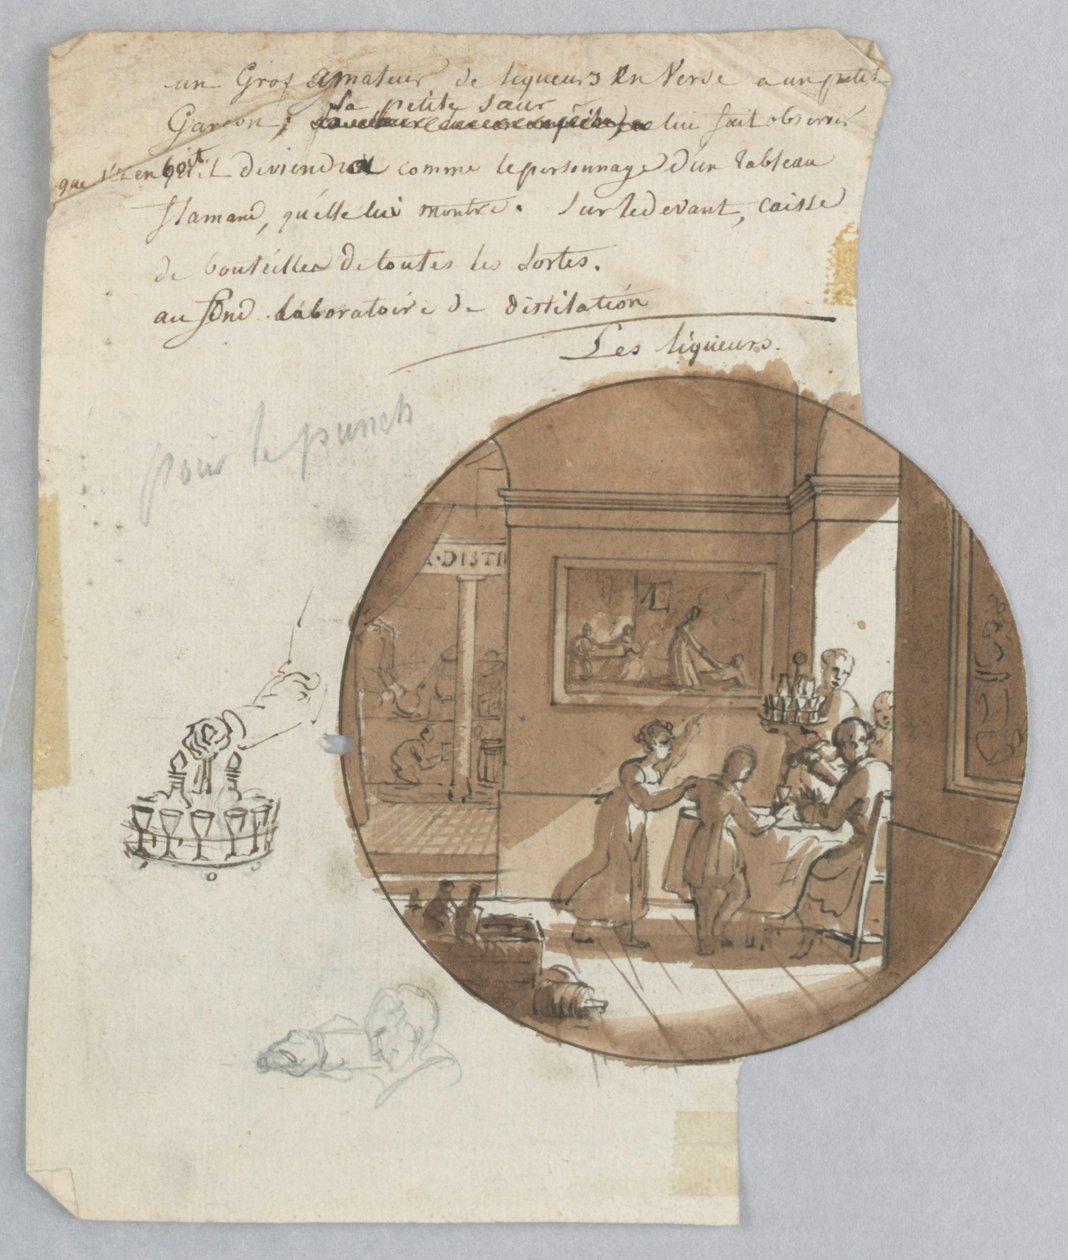 un Gros amateur de liqueurs en Verse a un petit
Garcon, sa petite sœur lui fait observer
que s'il en boit il deviendra comme le personnage d'un tableau
flamand, qu'elle lui montre. Sur le devant, caisse
de bouteilles de toutes les sortes.
au fond laboratoire de distilation
Les liqueurs.
pour le punch
R·DISTI